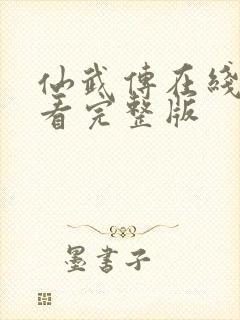 仙武傳在綫
看完整版
墨書子